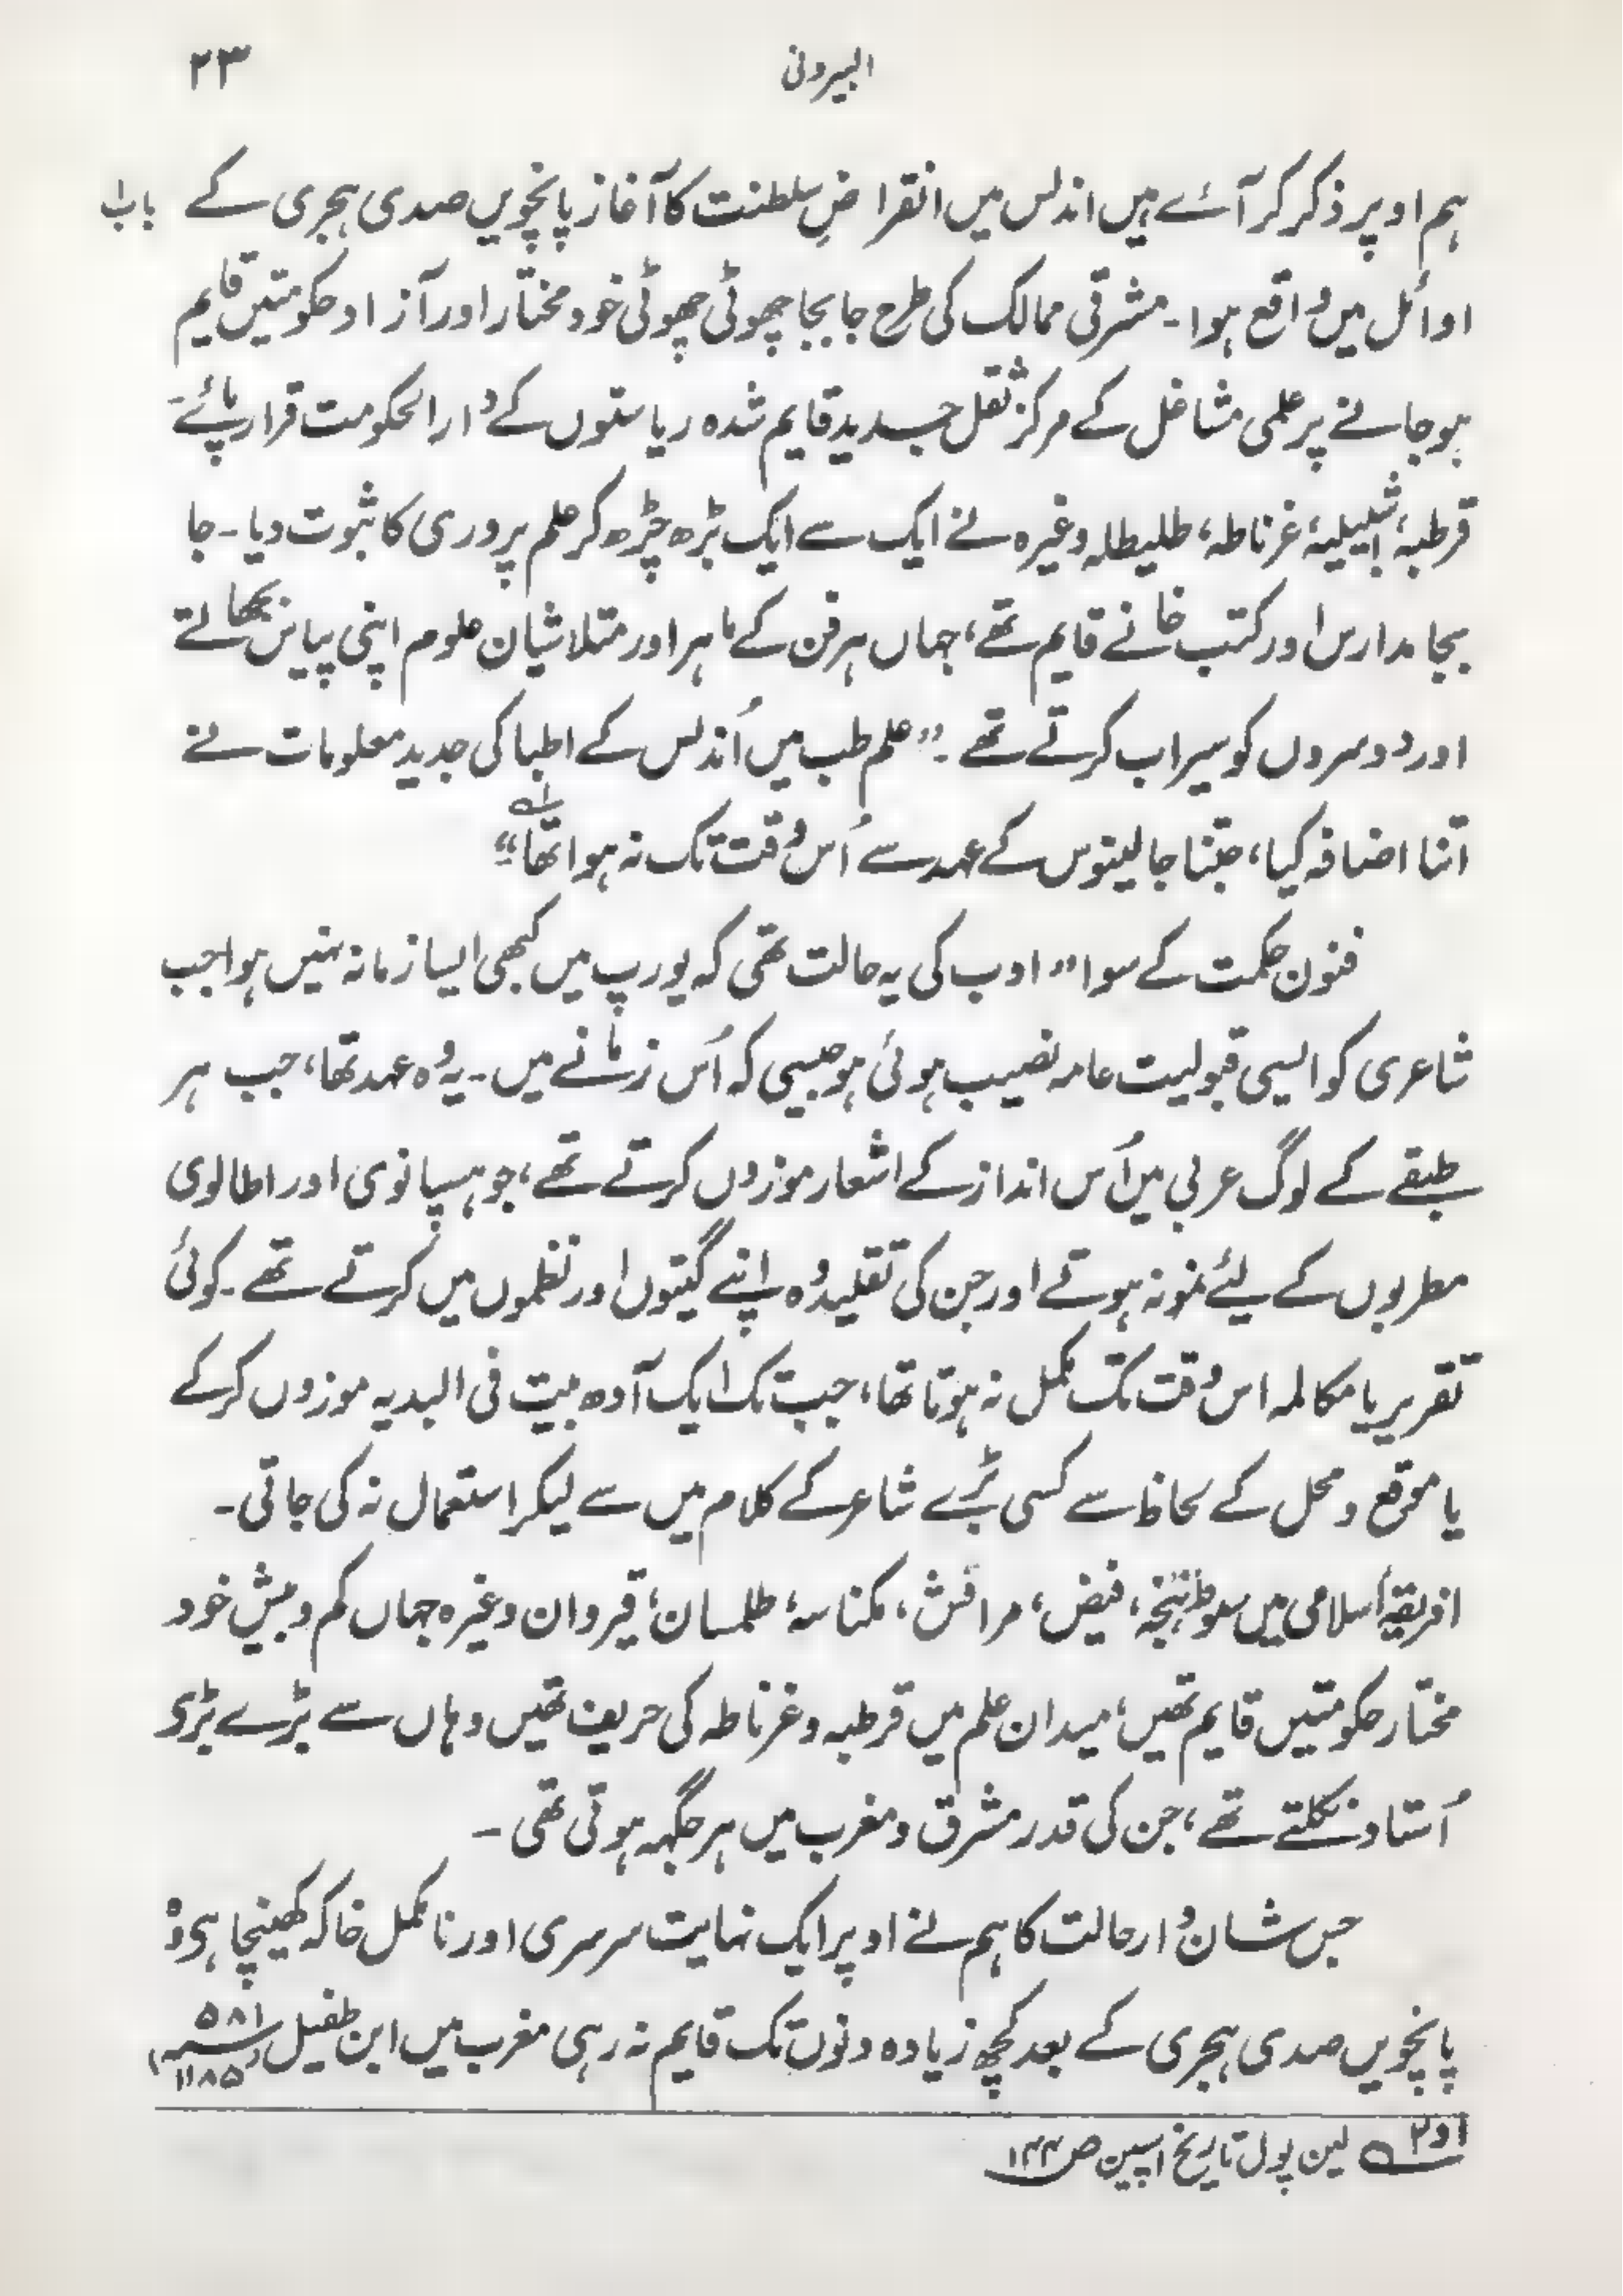 البیرونی ۲۳
ہم اوپر ذکر کر آئے ہیں اندلس میں انقراضِ سلطنت کا آغاز پانچویں صدی ہجری کے باب۱
اوائل میں واقع ہوا۔ مشرقی ممالک کی طرح جابجا چھوٹی چھوٹی خود مختار اور آزاد حکومتیں قایم
ہوجانے پر علمی مشاغل کے مرکز ثقل جدید قایم شدہ ریاستوں کے دارالحکومت قرار پائے
قرطبہ، اشبیلیہ، غرناطہ، طلیطلہ وغیرہ نے ایک سے ایک بڑھ چڑھ کر علم پروری کا ثبوت دیا۔ جا
بجا مدارس اور کتب خانے قایم تھے، جہاں ہر فن کے ماہر اور متلاشیان علوم اپنی پیاس بجھاتے
اور دوسروں کو سیراب کرتے تھے۔ ”علم طب میں اُندلس کے اطبا کی جدید معلومات نے
اتنا اضافہ کیا، جتنا جالینوس کے عہد سے اُس وقت تک نہ ہوا تھا“ ۱؎
فنون حکمت کے سوا ”ادب کی یہ حالت تھی کہ یورپ میں کبھی ایسا زمانہ نہیں ہوا جب
شاعری کو ایسی قبولیت عامہ نصیب ہوئی ہو جیسی کہ اُس زمانے میں۔ یہ وُہ عہد تھا، جب ہر
طبقے کے لوگ عربی میں اُس انداز کے اشعار موزوں کرتے تھے، جو ہسپانوی اور اطالوی
مطربوں کے لیئے نمونہ ہوتے اور جن کی تقلید وُہ اپنے گیتوں اور نظموں میں کرتے تھے۔ کوئی
تقریر یا مکالمہ اس وقت تک مکمل نہ ہوتا تھا، جب تک ایک آدھ بیت فی البدیہ موزوں کرکے
یا موقع و محل کے لحاظ سے کسی بڑے شاعر کے کلام میں سے لیکر استعمال نہ کی جاتی۔
افریقۂ اسلامی میں سلوطنجہ، فیض، مراقش، مکناسہ، طلمسان، قیروان وغیرہ جہاں کم و بیش خود
مختار حکومتیں قایم تھیں، میدان علم میں قرطبہ و غرناطہ کی حریف تھیں وہاں سے بڑے بڑی
اُستاد نکلتے تھے، جن کی قدر مشرق و مغرب میں ہر جگہہ ہوتی تھی۔
جس شاندار حالت کا ہم نے اوپر ایک نہایت سرسری اور نامکمل خاکہ کھینچا ہی وُہ
پانچویں صدی ہجری کے بعد کچھ زیادہ دنوں تک قایم نہ رہی مغرب میں ابن طفیل (۵۸۱؁ ۱۱۸۵)
۱و۲؎ لین پول تاریخ اسپین ص ۱۴۴